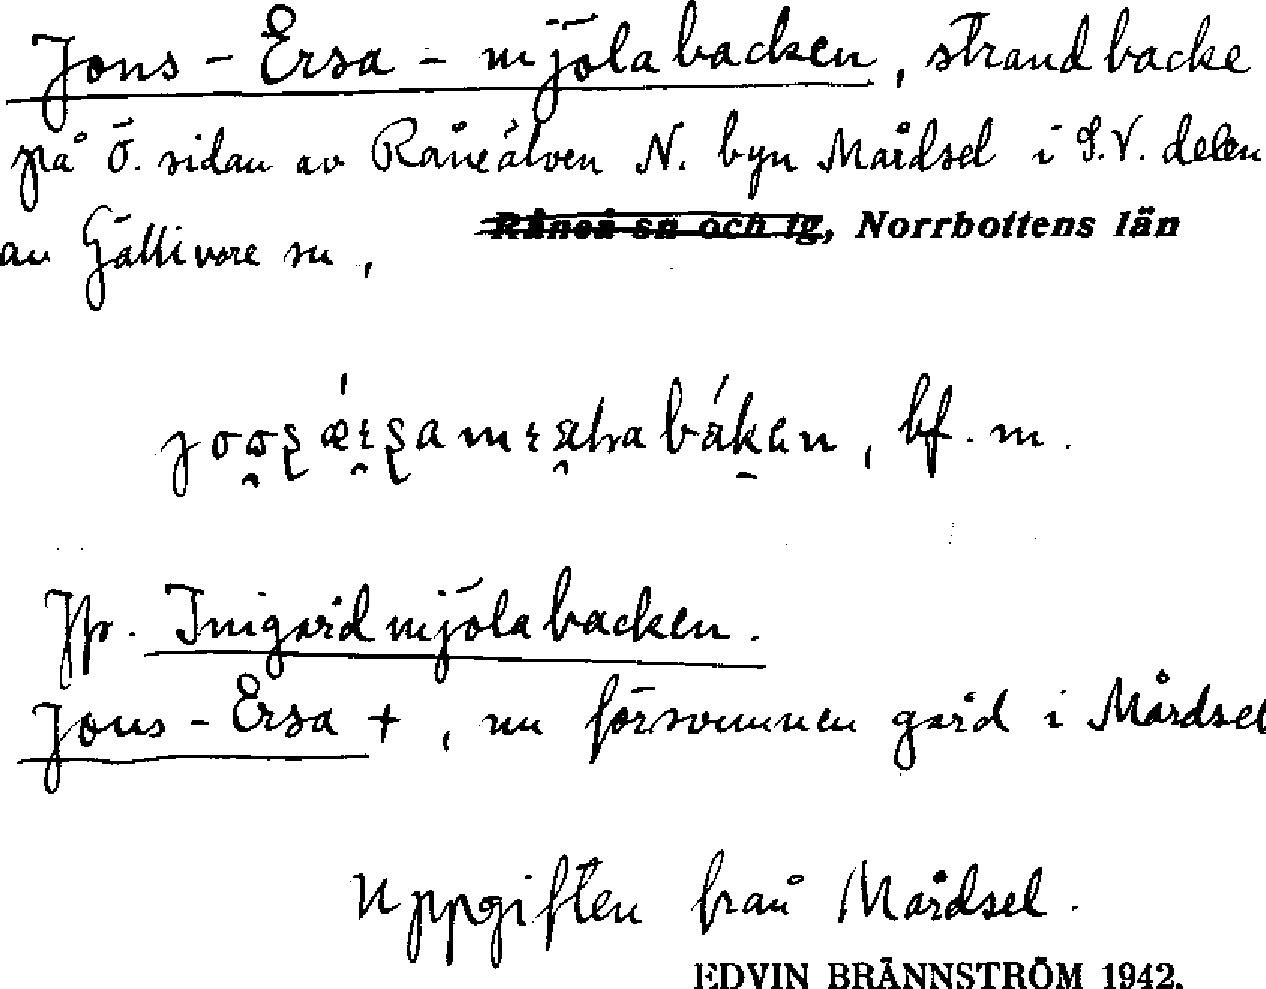 Jons-Ersa-mjölabacken, strandbacke
på Ö. sidan av Råneälven N. byn Mårdsel i S.V. delen
av Gällivare sn, Råneå sn och tg, Norrbottens län
bf. m.
Jfr. Inigårdmjölabacken.
Jons-Ersa +, nu försvunnen gård i Mårdsel
Uppgiften från Mårdsel.
EDVIN BRÄNNSTRÖM 1942.